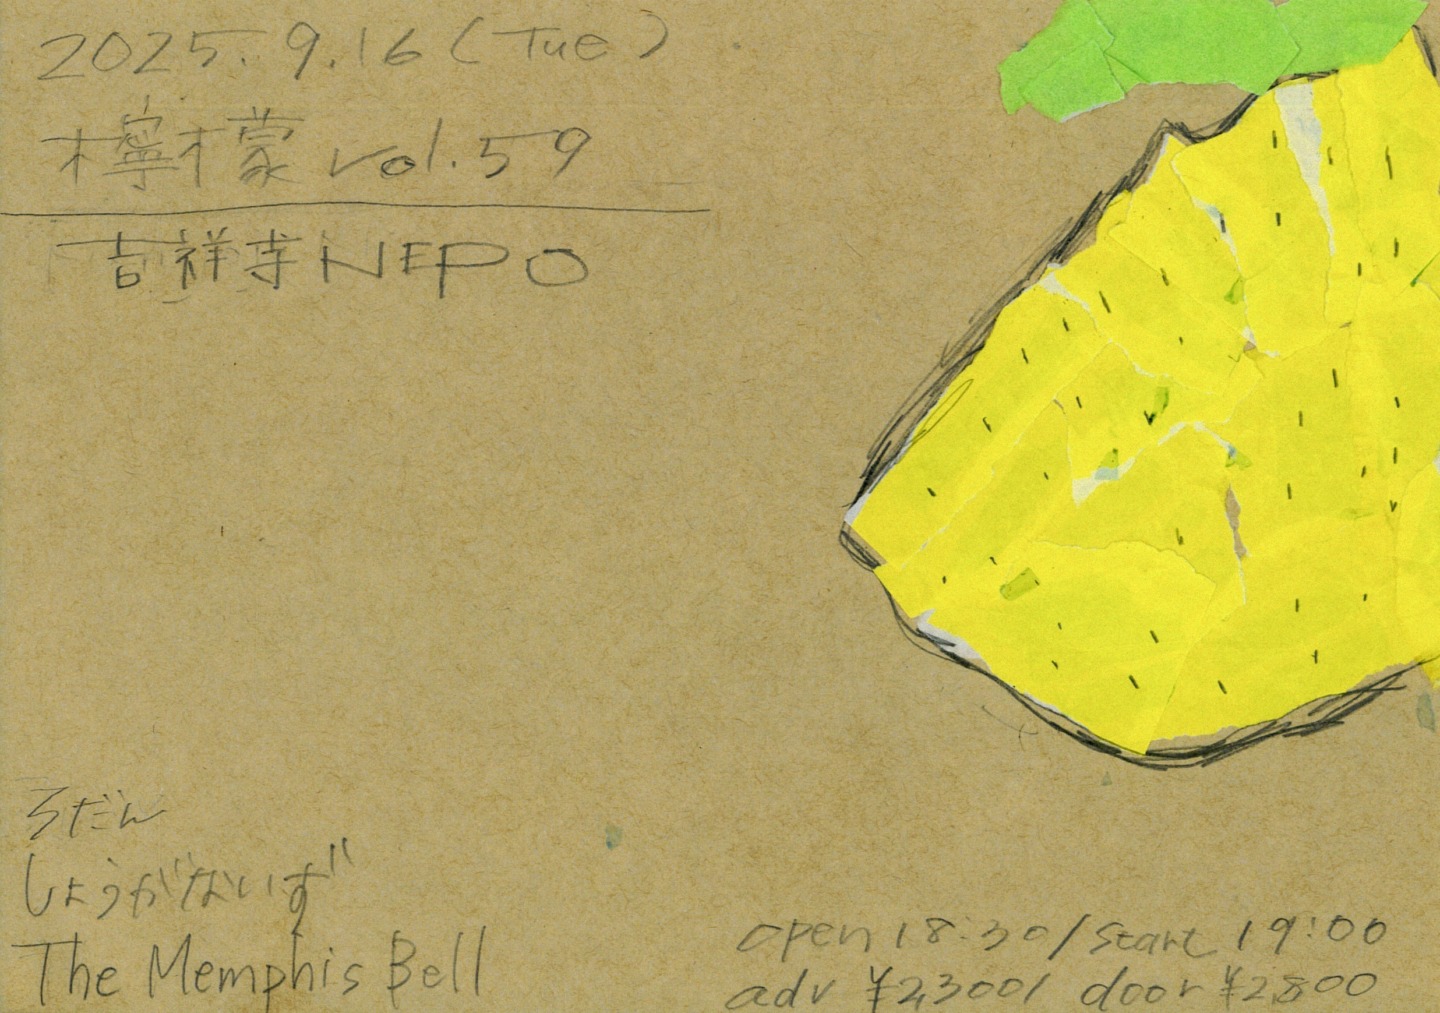 2025.9.16(Tue)
檸檬 vol.59
吉祥寺NEPO
ろだん
しょうがないず
The Memphis Bell
open 18:30/start 19:00
adv ¥2,300/ door ¥2,800